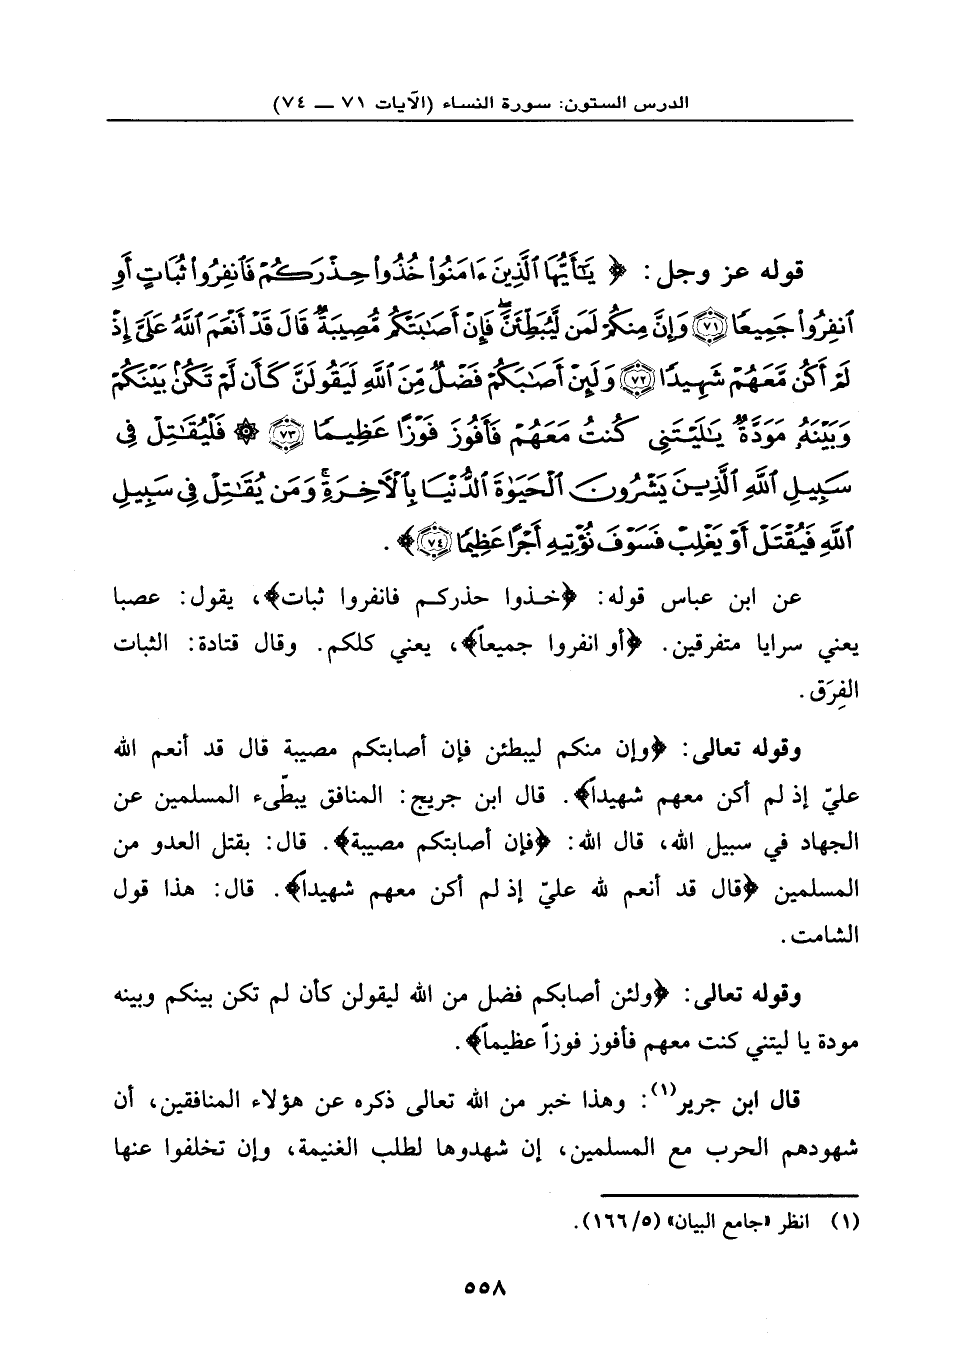 الدرس الستون: سورة النساء (الآيات ٧١ — ٧٤)
قوله عز وجل: ﴿يَٰٓأَيُّهَا ٱلَّذِينَ ءَامَنُوا۟ خُذُوا۟ حِذْرَكُمْ فَٱنفِرُوا۟ ثُبَاتٍ أَوِ
ٱنفِرُوا۟ جَمِيعًا ٧١ وَإِنَّ مِنكُمْ لَمَن لَّيُبَطِّئَنَّ ۖ فَإِنْ أَصَٰبَتْكُم مُّصِيبَةٌ قَالَ قَدْ أَنْعَمَ ٱللَّهُ عَلَىَّ إِذْ
لَمْ أَكُن مَّعَهُمْ شَهِيدًا ٧٢ وَلَئِنْ أَصَٰبَكُمْ فَضْلٌ مِّنَ ٱللَّهِ لَيَقُولَنَّ كَأَن لَّمْ تَكُنۢ بَيْنَكُمْ
وَبَيْنَهُۥ مَوَدَّةٌ يَٰلَيْتَنِى كُنتُ مَعَهُمْ فَأَفُوزَ فَوْزًا عَظِيمًا ٧٣ ۞ فَلْيُقَٰتِلْ فِى
سَبِيلِ ٱللَّهِ ٱلَّذِينَ يَشْرُونَ ٱلْحَيَوٰةَ ٱلدُّنْيَا بِٱلْءَاخِرَةِ ۚ وَمَن يُقَٰتِلْ فِى سَبِيلِ
ٱللَّهِ فَيُقْتَلْ أَوْ يَغْلِبْ فَسَوْفَ نُؤْتِيهِ أَجْرًا عَظِيمًا ٧٤﴾.
عن ابن عباس قوله: ﴿خذوا حذركم فانفروا ثبات﴾، يقول: عصبا
يعني سرايا متفرقين. ﴿أو انفروا جميعاً﴾، يعني كلكم. وقال قتادة: الثبات
الفِرَق.
وقوله تعالى: ﴿وإن منكم ليبطئن فإن أصابتكم مصيبة قال قد أنعم الله
عليّ إذ لم أكن معهم شهيداً﴾. قال ابن جريج: المنافق يبطّىء المسلمين عن
الجهاد في سبيل الله، قال الله: ﴿فإن أصابتكم مصيبة﴾. قال: بقتل العدو من
المسلمين ﴿قال قد أنعم لله عليّ إذ لم أكن معهم شهيداً﴾. قال: هذا قول
الشامت.
وقوله تعالى: ﴿ولئن أصابكم فضل من الله ليقولن كأن لم تكن بينكم وبينه
مودة يا ليتني كنت معهم فأفوز فوزاً عظيماً﴾.
قال ابن جرير(١): وهذا خبر من الله تعالى ذكره عن هؤلاء المنافقين، أن
شهودهم الحرب مع المسلمين، إن شهدوها لطلب الغنيمة، وإن تخلفوا عنها
(١) انظر «جامع البيان» (٥/١٦٦).
٥٥٨